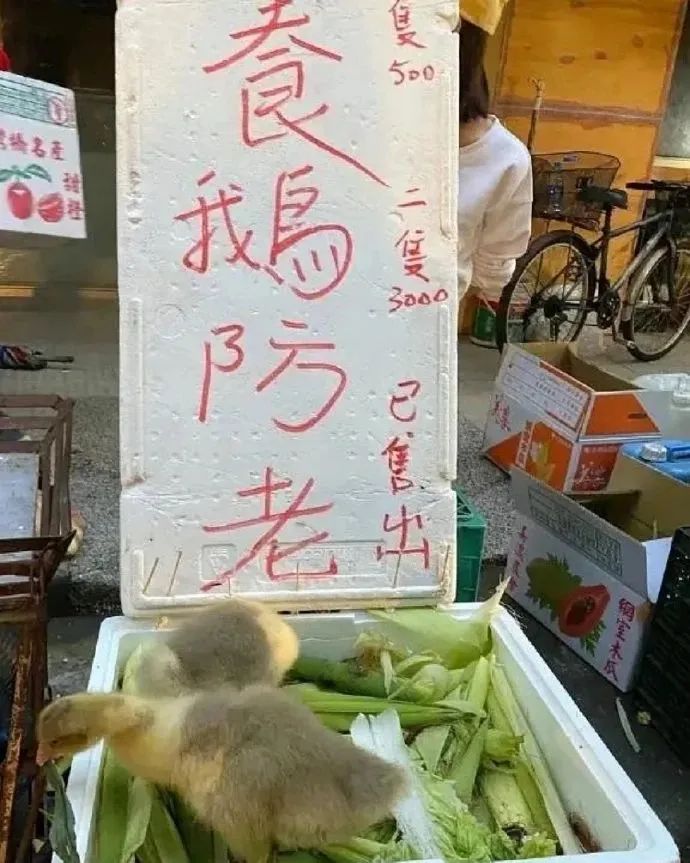 養鵝防老
隻
500
二隻
3000
已售出
橋名產
網室木瓜